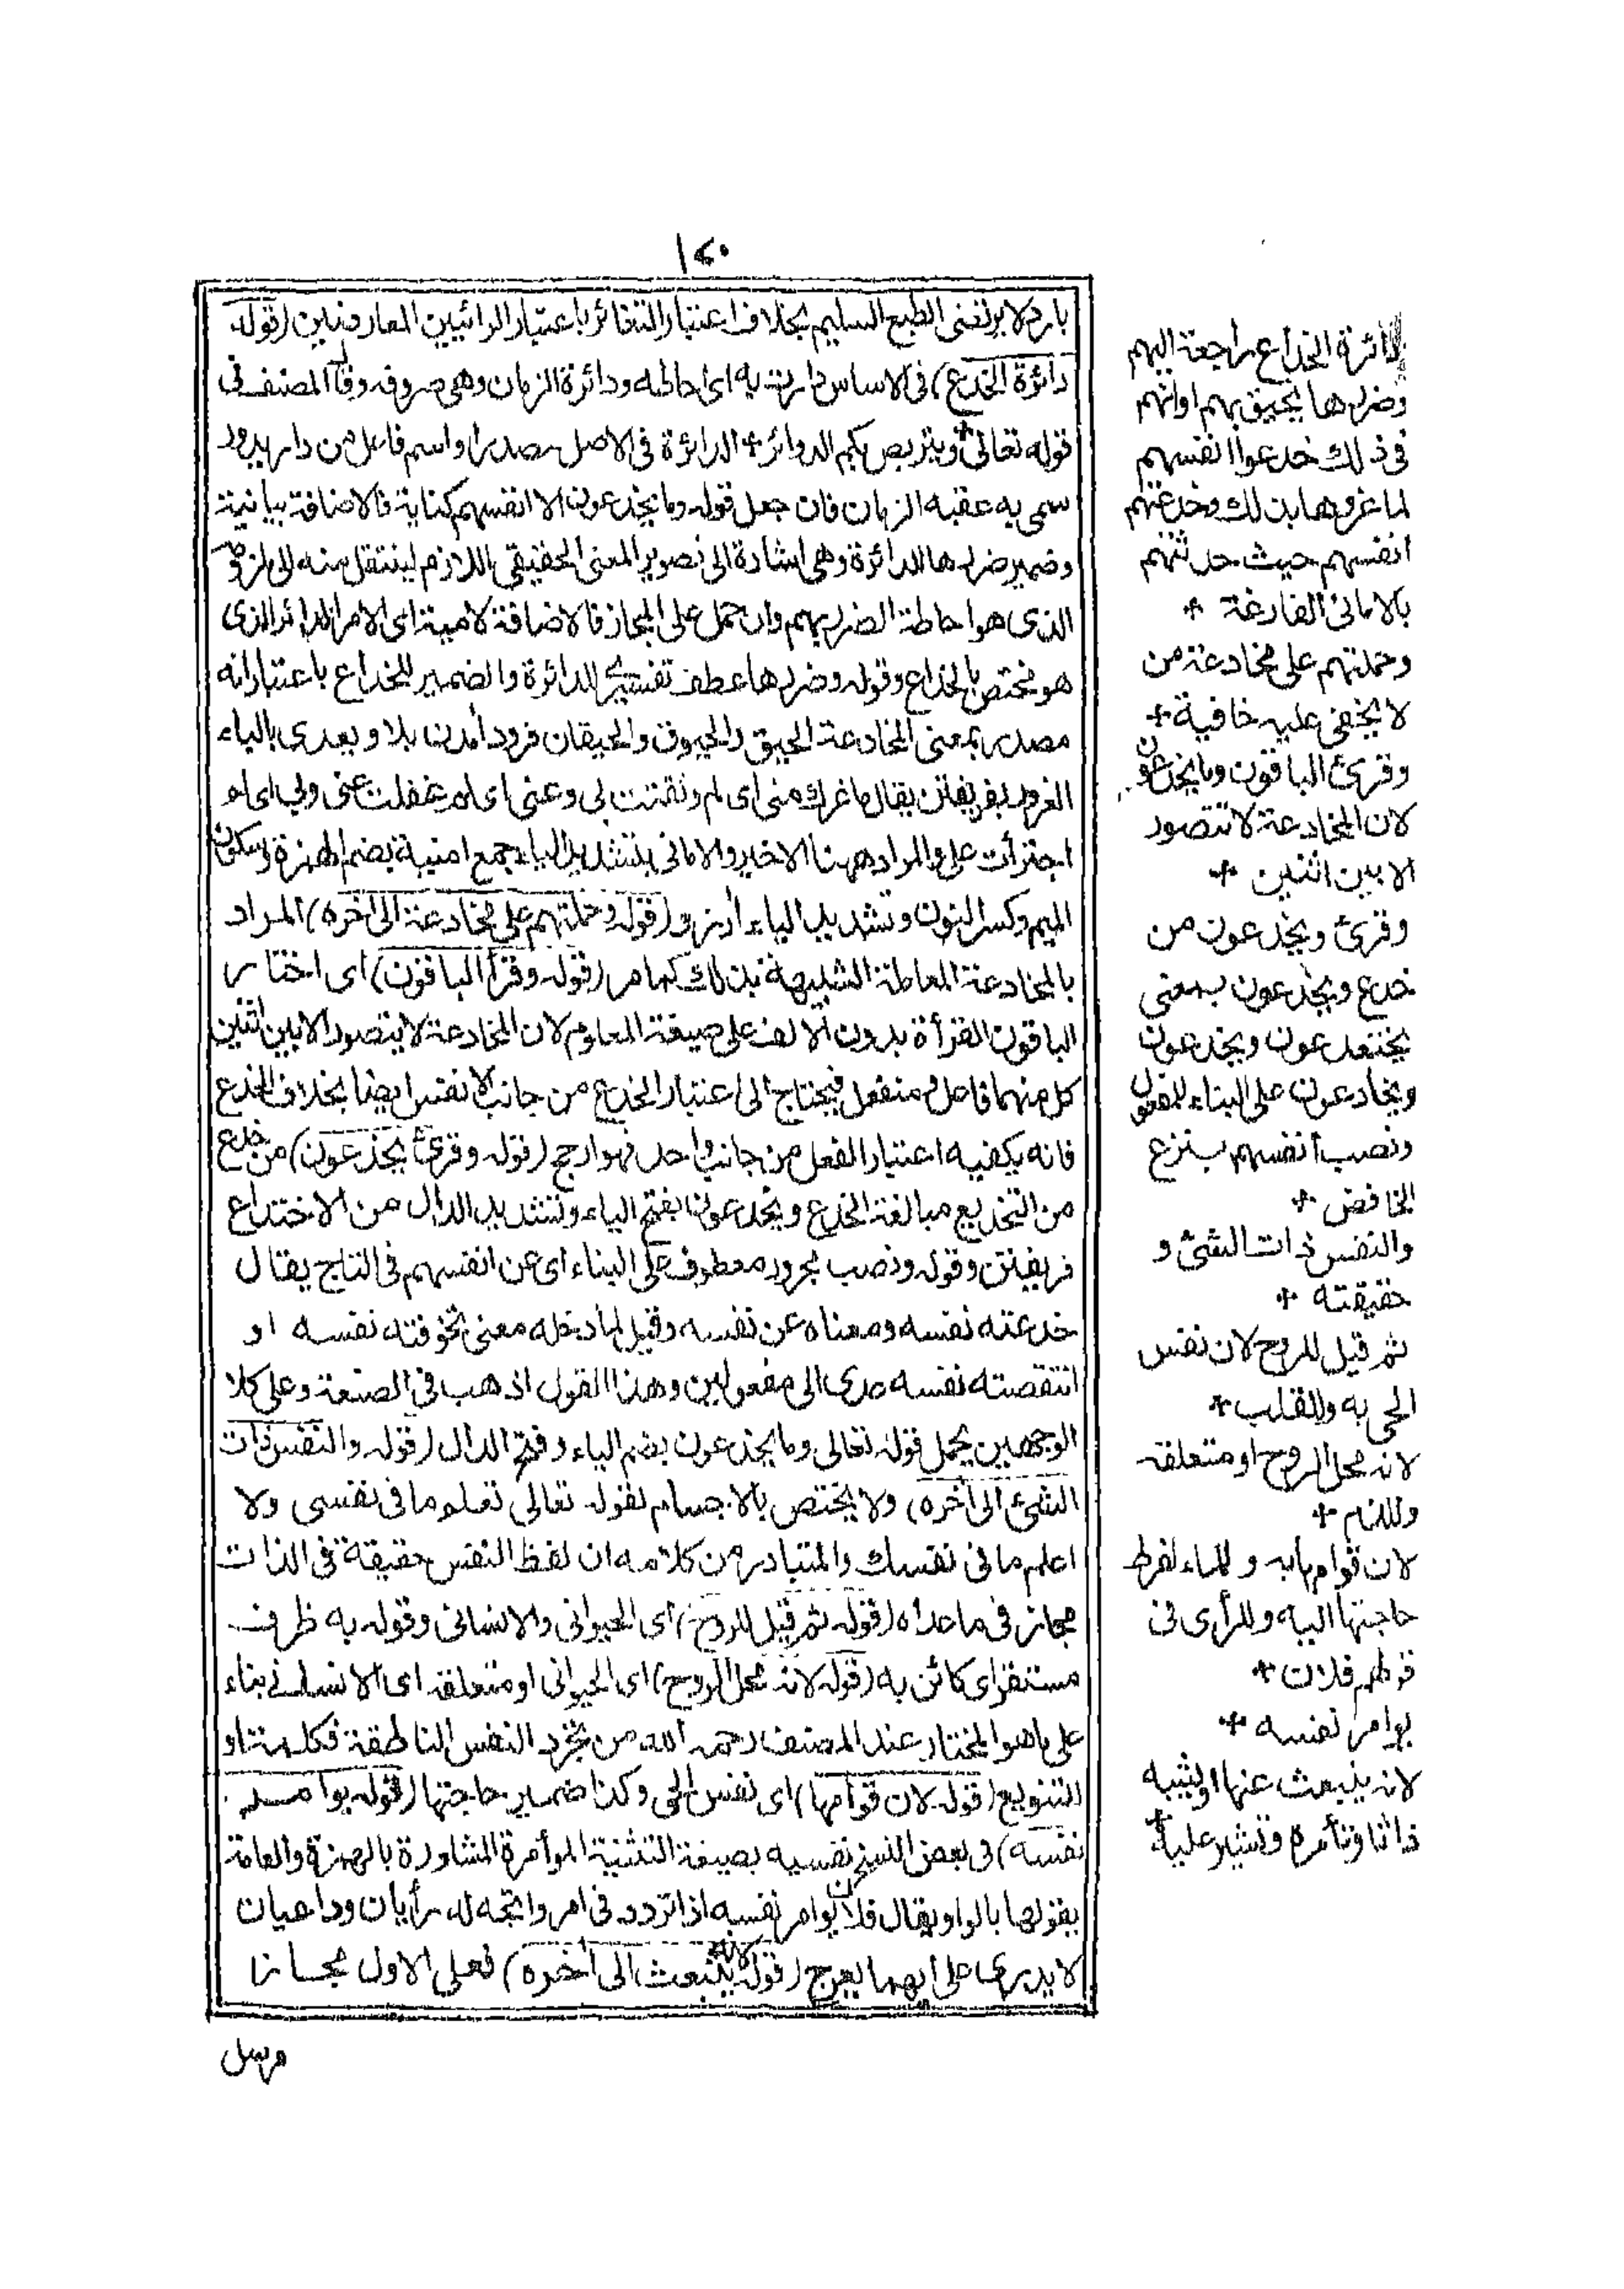 ١٤٠
بارد لا يرتضى الطبع السليم بخلاف اعتبار التغائر باعتبار الرائيين المعارضين (قوله
دائرة الخدع) فى الاساس دارت به اى احاطه ودائرة الزمان وهى صروفه وقال المصنف فى
قوله تعالى ويتربص بكم الدوائر + الدائرة فى الاصل مصدر او اسم فاعل من دار يدور
سمى به عقبه الزمان فان جعل قوله وما يخدعون الا انفسهم كناية فالاضافة بيانية
وضمير ضررها للدائرة وهى اشارة الى تصوير المعنى الحقيقى اللازم لينتقل منه الى ملزومه
الذى هو احاطة الضرر بهم وان حمل على المجاز فالاضافة لامية اى الامر الدائر الذى
هو مختص بالخداع وقوله وضررها عطف تفسيرى للدائرة والضمير للخداع باعتبار انه
مصدر بمعنى المخادعة الحيق والحيوق والحيقان فرود آمدن بلا ويعدى بالباء
الغرور بفريفتن يقال ما غرك منى اى لم وثقت بى وعنى اى لم غفلت عنى وبى اى لم
اجترأت على والمراد ههنا الاخير والامانى بتشديد الياء جمع امنية بضم الهمزة وسكون
الميم وكسر النون وتشديد الياء آرزو (قوله وحملتهم على مخادعة الى اخره) المراد
بالمخادعة المعاملة الشبيهة بذلك كما مر (قوله وقرأ الباقون) اى اختار
الباقون القرأة بدون الالف على صيغة المعلوم لان المخادعة لا يتصور الا بين اثنين
كل منهما فاعل ومنفعل فيحتاج الى اعتبار الخدع من جانب الانفس ايضا بخلاف الخدع
فانه يكفيه اعتبار الفعل من جانب واحد فهو ارجح (قوله وقرئ يخدعون) من خدع
من التخديع مبالغة الخدع ويخدعون بفتح الياء وتشديد الدال من الاختداع
فريفتن وقوله ونصب مجرور معطوف على البناء اى عن انفسهم فى التاج يقال
خدعته نفسه ومعناه عن نفسه وقيل لما دخله معنى تخوفته نفسه او
انتقصته نفسه عدى الى مفعولين وهذا القول اذهب فى الصنعة وعلى كلا
الوجهين يحمل قوله تعالى وما يخدعون بضم الياء وفتح الدال (قوله والنفس ذات
الشئ الى آخره) ولا يختص بالاجسام لقوله تعالى تعلم ما فى نفسى ولا
اعلم ما فى نفسك والمتبادر من كلامه ان لفظ النفس حقيقة فى الذات
مجاز فى ما عداه (قوله ثم قيل للروح) اى الحيوانى والانسانى وقوله به ظرف
مستقر اى كائن به (قوله لانه محل الروح) اى الحيوانى او متعلقه اى الانسانى بناء
على ما هو المختار عند المصنف رحمه الله من تجرد النفس الناطقة فكلمة او
للتنويع (قوله لان قوامها) اى نفس الحى وكذا ضمير حاجتها (قوله يوامر
نفسه) فى بعض النسخ نفسيه بصيغة التثنية المؤامرة المشاورة بالهمزة والعامة
يقولها بالواو يقال فلان يوامر نفسيه اذا تردد فى امر واتجه له رأيان وداعيان
لا يدرى على ايهما يعرج (قوله لانه ينبعث الى آخره) فعلى الاول مجازا
مرسل
دائرة الخداع راجعة اليهم
وضررها يحيق بهم او انهم
فى ذلك خدعوا انفسهم
لما غروها بذلك وخدعتهم
انفسهم حيث حدثتهم
بالامانى الفارغة +
وحملتهم على مخادعة من
لا يخفى عليه خافية +
وقرئ الباقون وما يخدعون
لان المخادعة لا تتصور
الا بين اثنين +
وقرئ ويخدعون من
خدع ويخدعون بمعنى
يختدعون ويخدعون
ويخادعون على البناء للمفعول
ونصب أنفسهم بنزع
الخافض +
والنفس ذات الشئ و
حقيقته +
ثم قيل للروح لان نفس
الحى به وللقلب +
لانه محل الروح او متعلقه
وللدم +
لان قوامها به وللماء لفرط
حاجتها اليه وللرأى فى
قولهم فلان +
يوامر نفسه +
لانه ينبعث عنها او يشبه
ذاتا تأمره وتشير عليه +